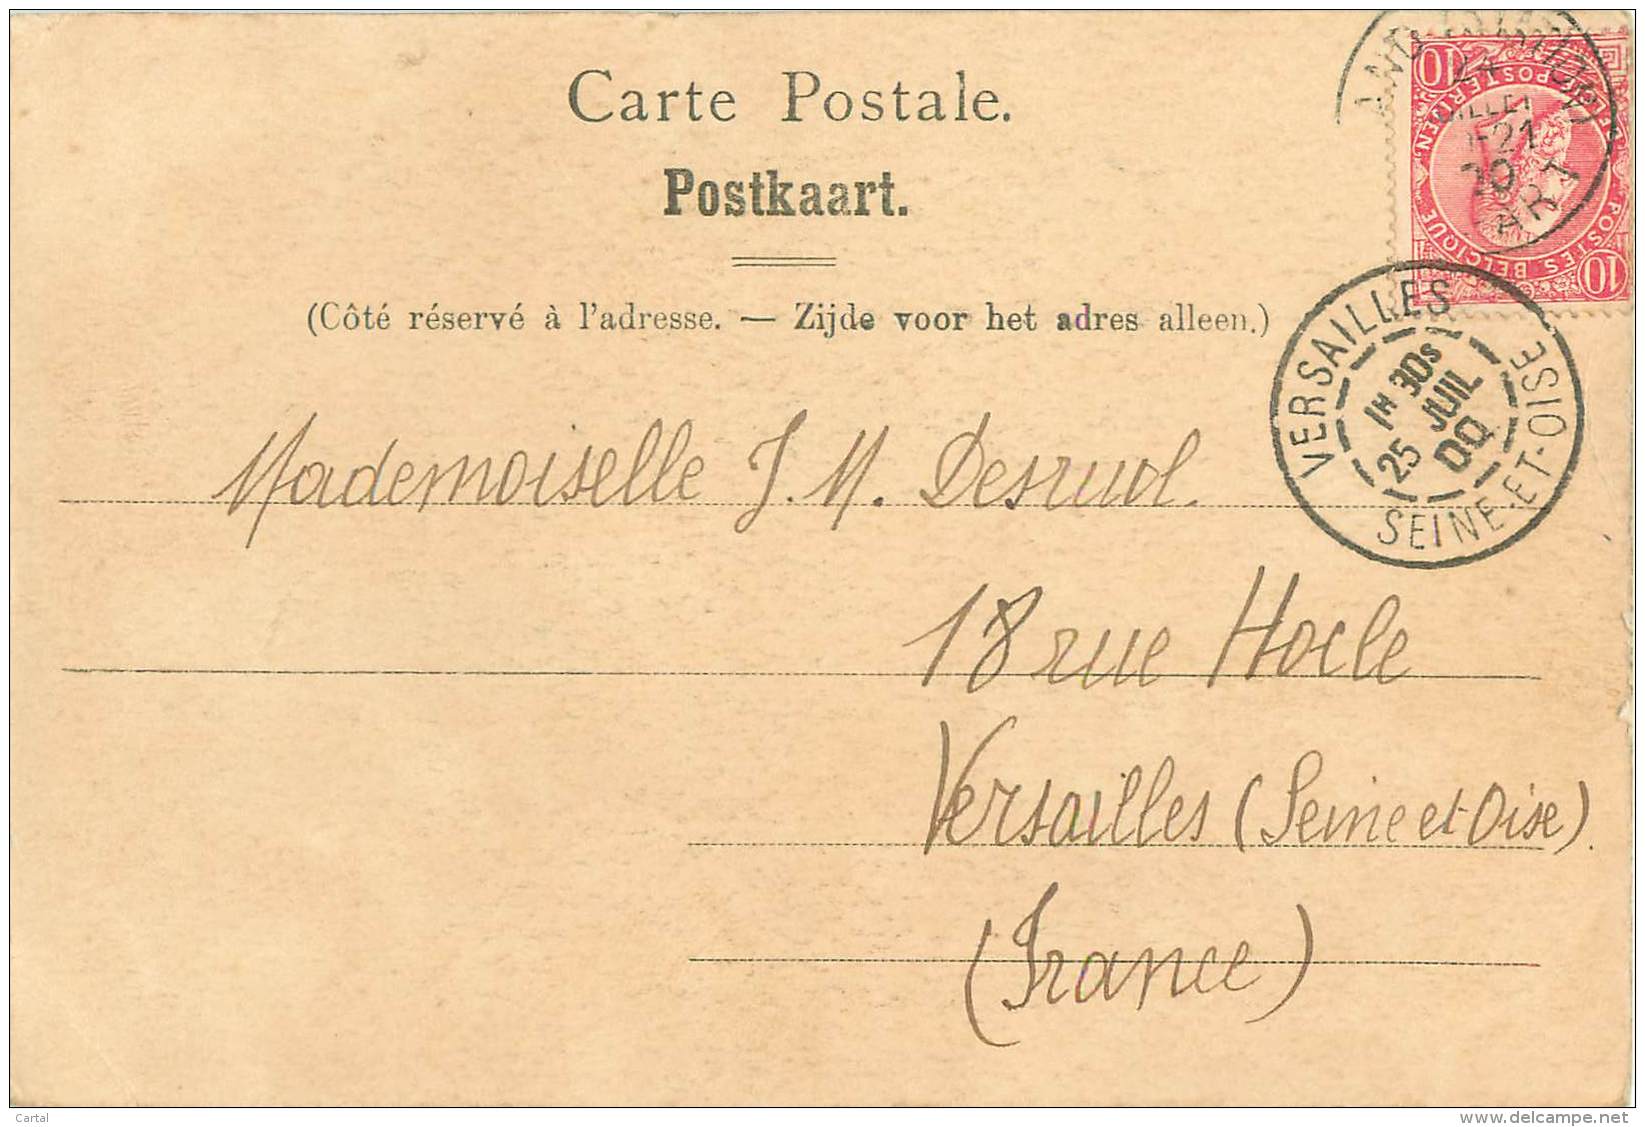 Carte Postale.
Postkaart.
(Côté réservé à l'adresse. — Zijde voor het adres alleen.)
10
POSTES BELGIQUE
BELGIE POSTERIJEN
10
24
20
VERSAILLES
1H 30s
25 JUIL
00
SEINE-ET-OISE
Mademoiselle J. M. Desruol.
18 rue Hoche
Versailles (Seine et Oise).
(France)
Cartal
www.delcampe.net